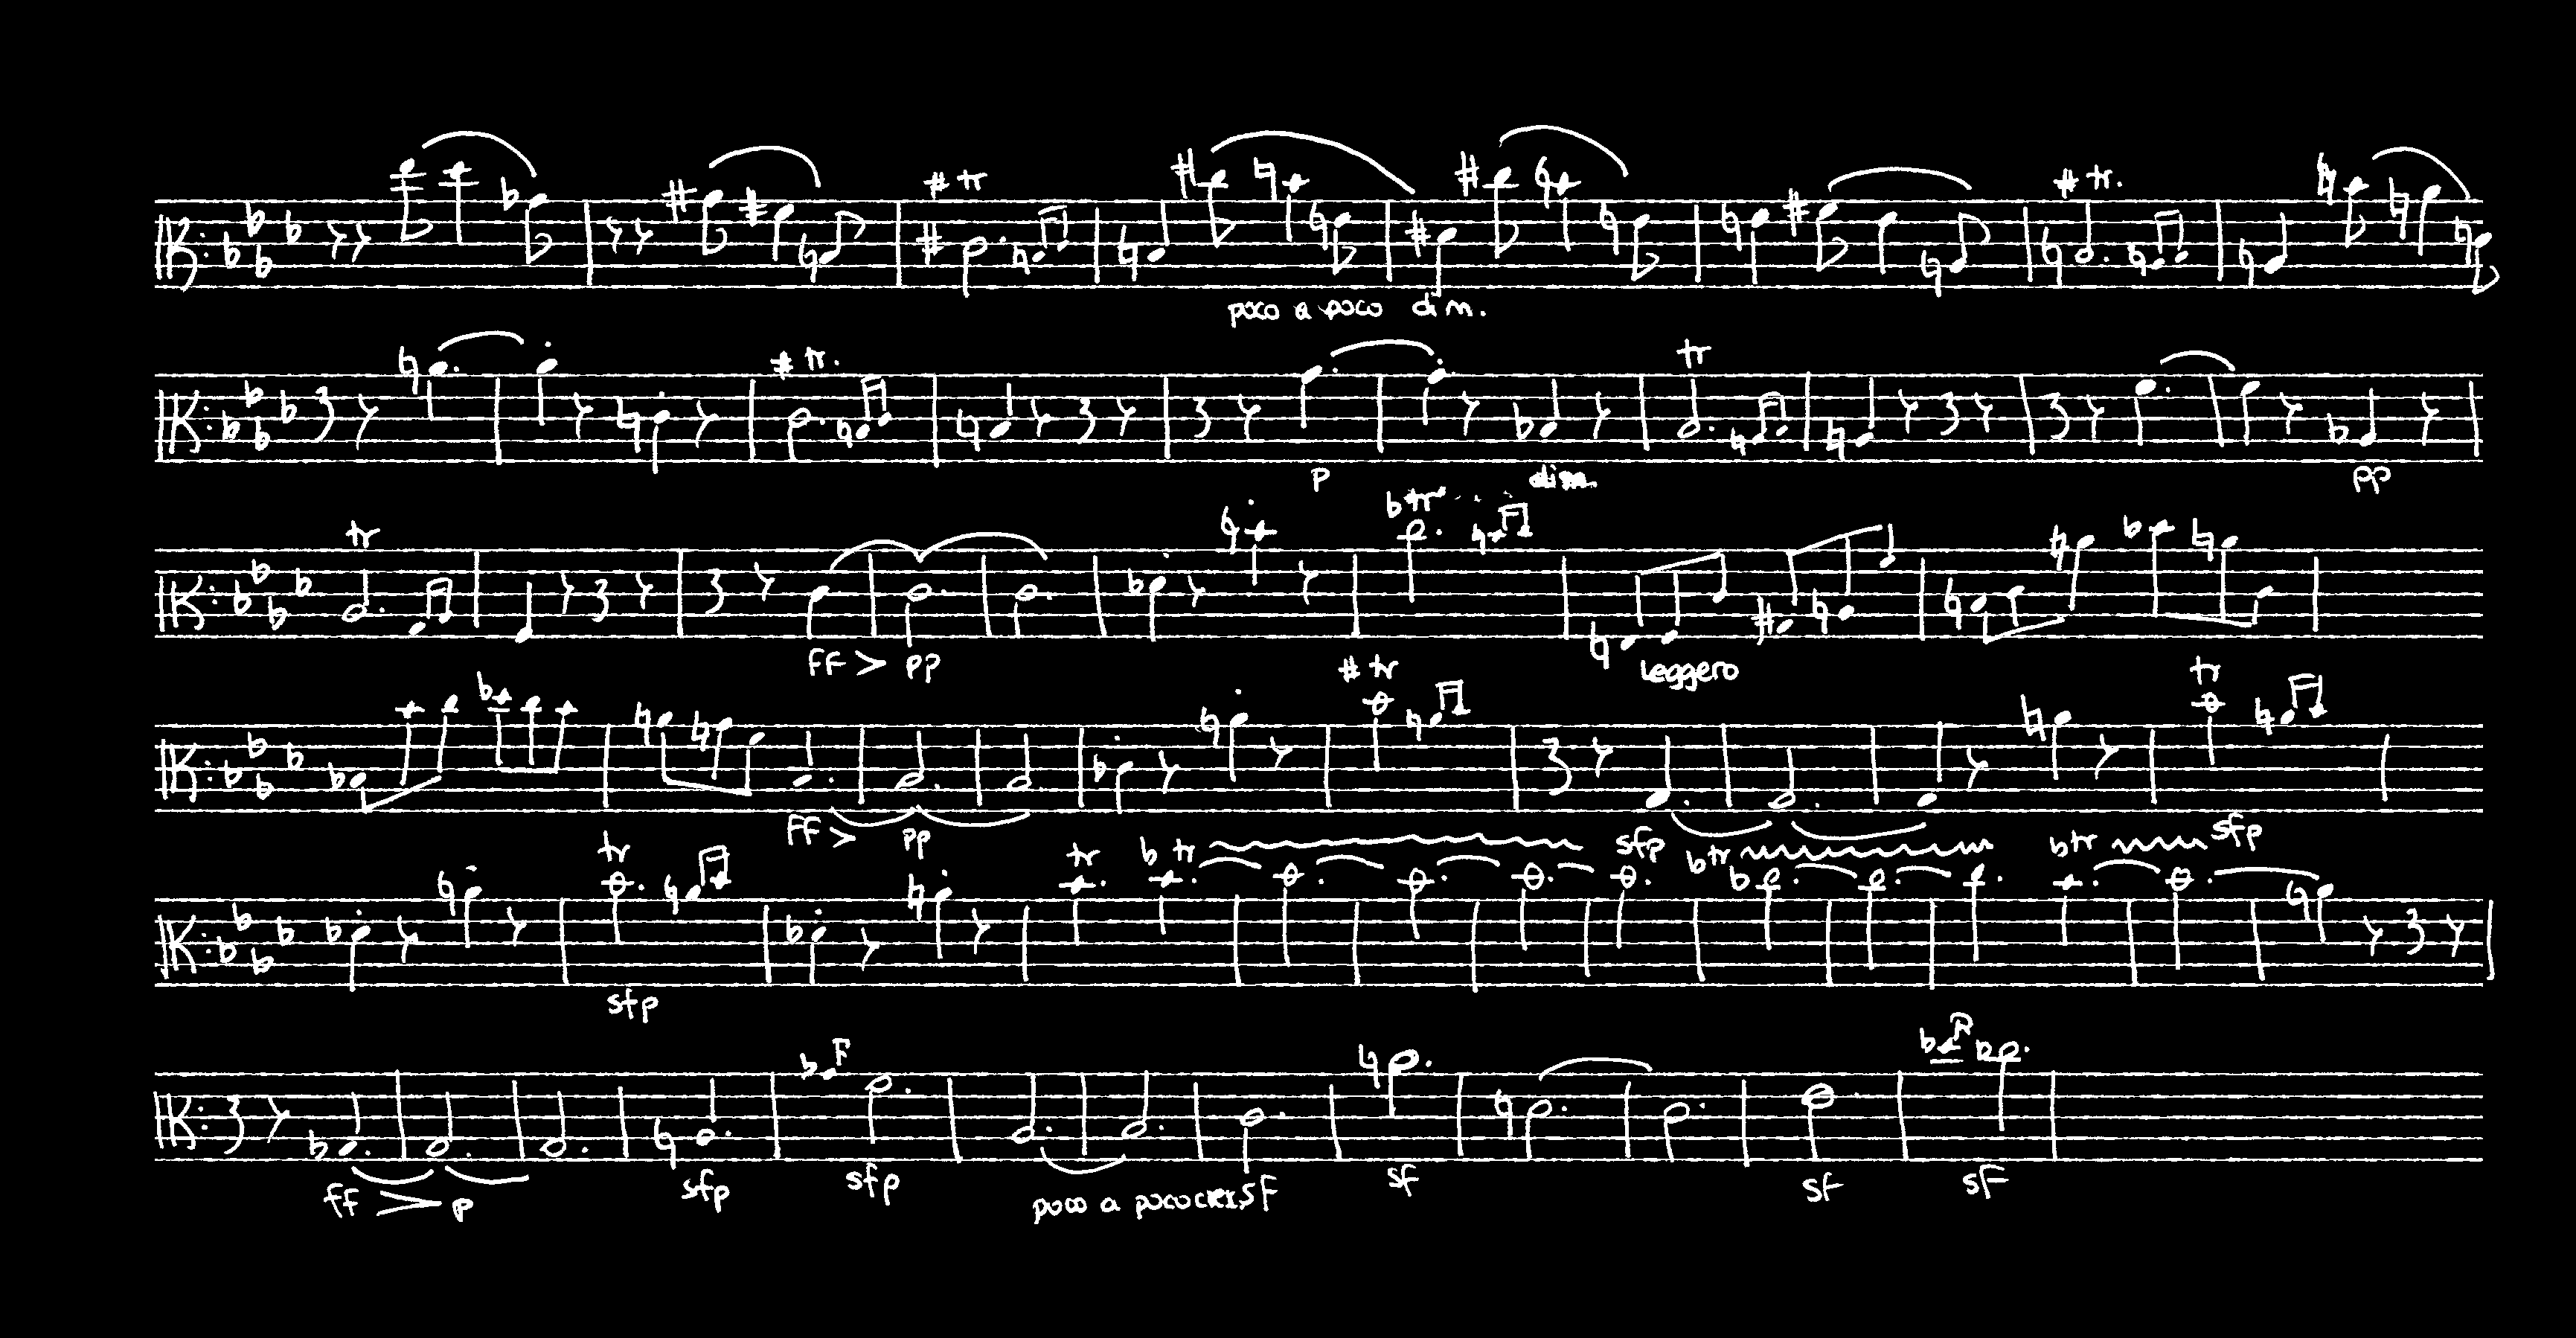 tr
tr.
poco a poco dim.
tr.
tr
p
dim.
pp
tr
tr
ff > pp
leggero
tr
tr
ff > pp
sfp
sfp
tr
tr
tr
tr
tr
sfp
ff > p
sfp
sfp
poco a poco cresc. sf
sf
sf
sf